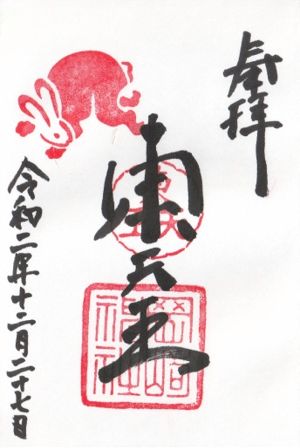 奉拝
東天王
岡崎
神社
令和二年十二月二十七日